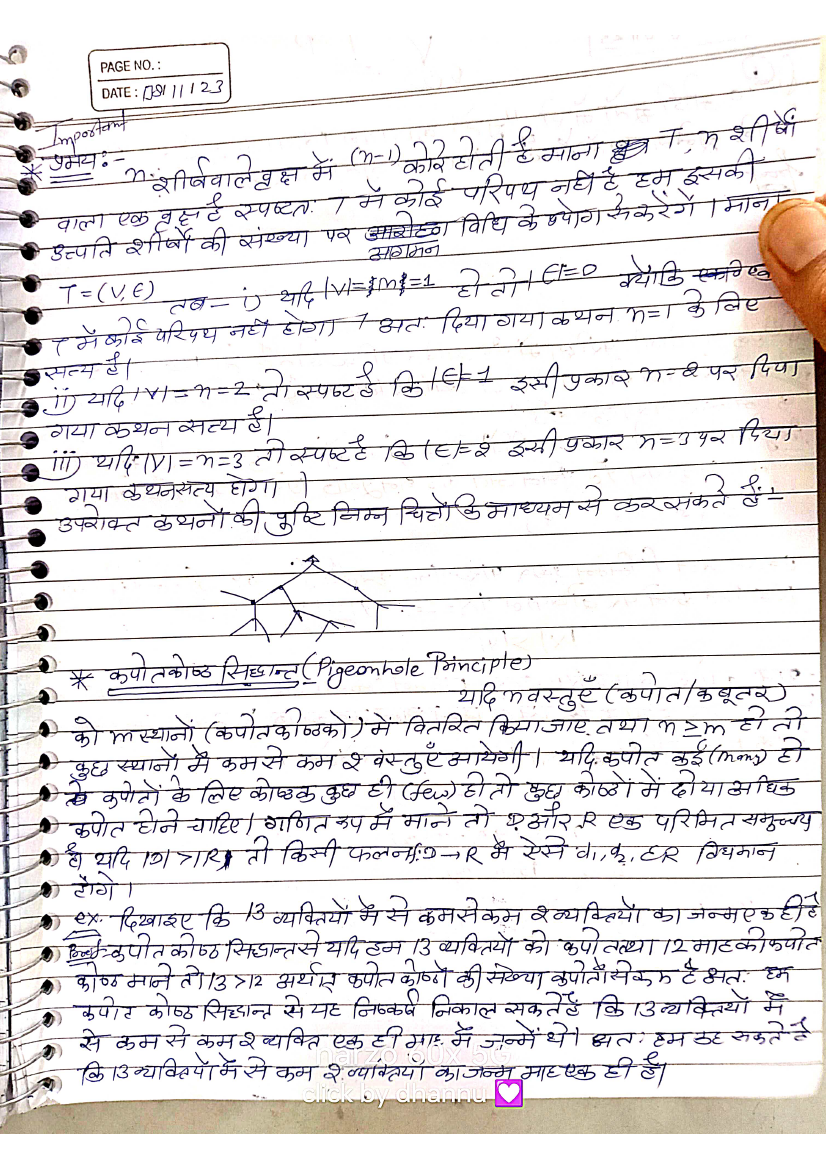 PAGE NO. :
DATE : 08/11/23
Important
* प्रमेय:-
n शीर्षवाले वृक्ष में (n-1) कोरे होती है माना T, n शीर्षों
वाला एक वृक्ष है स्पष्टतः T में कोई परिपथ नहीं है हम इसकी
उत्पति शीर्षों की संख्या पर आगमन विधि के प्योग से करेंगें । माना
T = (V, E)
तब - i) यदि |V|= =1 हो तो |E|=0 क्योंकि
T में कोई परिपथ नहीं होगा अतः दिया गया कथन n=1 के लिए
सत्य है।
ii) यदि |V|=n=2 तो स्पष्ट है कि |E|=1 इसी प्रकार n=2 पर दिया
गया कथन सत्य है।
iii) यदि |V|=n=3 तो स्पष्ट है कि |E|=2 इसी प्रकार n=3 पर दिया
गया कथन सत्य होगा।
उपरोक्त कथनों की पुष्टि निम्न चित्तों कि माध्यम से कर सकते हैं:-
* कपोतकोष्ठ सिद्धान्त (Pigeonhole Principle)
यदि n वस्तुएँ (कपोत/कबूतर)
को m स्थानों (कपोतकोष्ठकों) में वितरित किया जाए तथा n ≥ m हो तो
कुछ स्थानों में कम से कम 2 वस्तुएँ आयेगी। यदि कपोत कई (many) हो
कपोतों के लिए कोष्ठक कुछ ही (few) हो तो कुछ कोष्ठों में दो या अधिक
कपोत होने चाहिए। गणित रूप में माने तो D और R एक परिमित समुच्चय
है। यदि |D|>|R| तो किसी फलन f:D→R में ऐसे ∈R विधमान
होंगे ।
ex. दिखाइए कि 13 व्यक्तियों में से कम से कम 2 व्यक्तियों का जन्म एक ही है
कपोत कोष्ठ सिद्धान्त से यदि हम 13 व्यक्तियों को कपोत तथा 12 माह को कपोत
कोष्ठ माने तो 13>12 अर्थात् कपोत कोष्ठों की संख्या कपोतों से कम है अतः हम
कपोट कोष्ठ सिद्धान्त से यह निष्कर्ष निकाल सकते हैं कि 13 व्यक्तियों में
से कम से कम 2 व्यक्ति एक ही माह में जन्में थे। अतः हम कह सकते है
कि 13 व्यक्तियों में से कम 2 व्यक्तियों का जन्म माह एक ही है।
narzo 60x 5G
click by dhannu